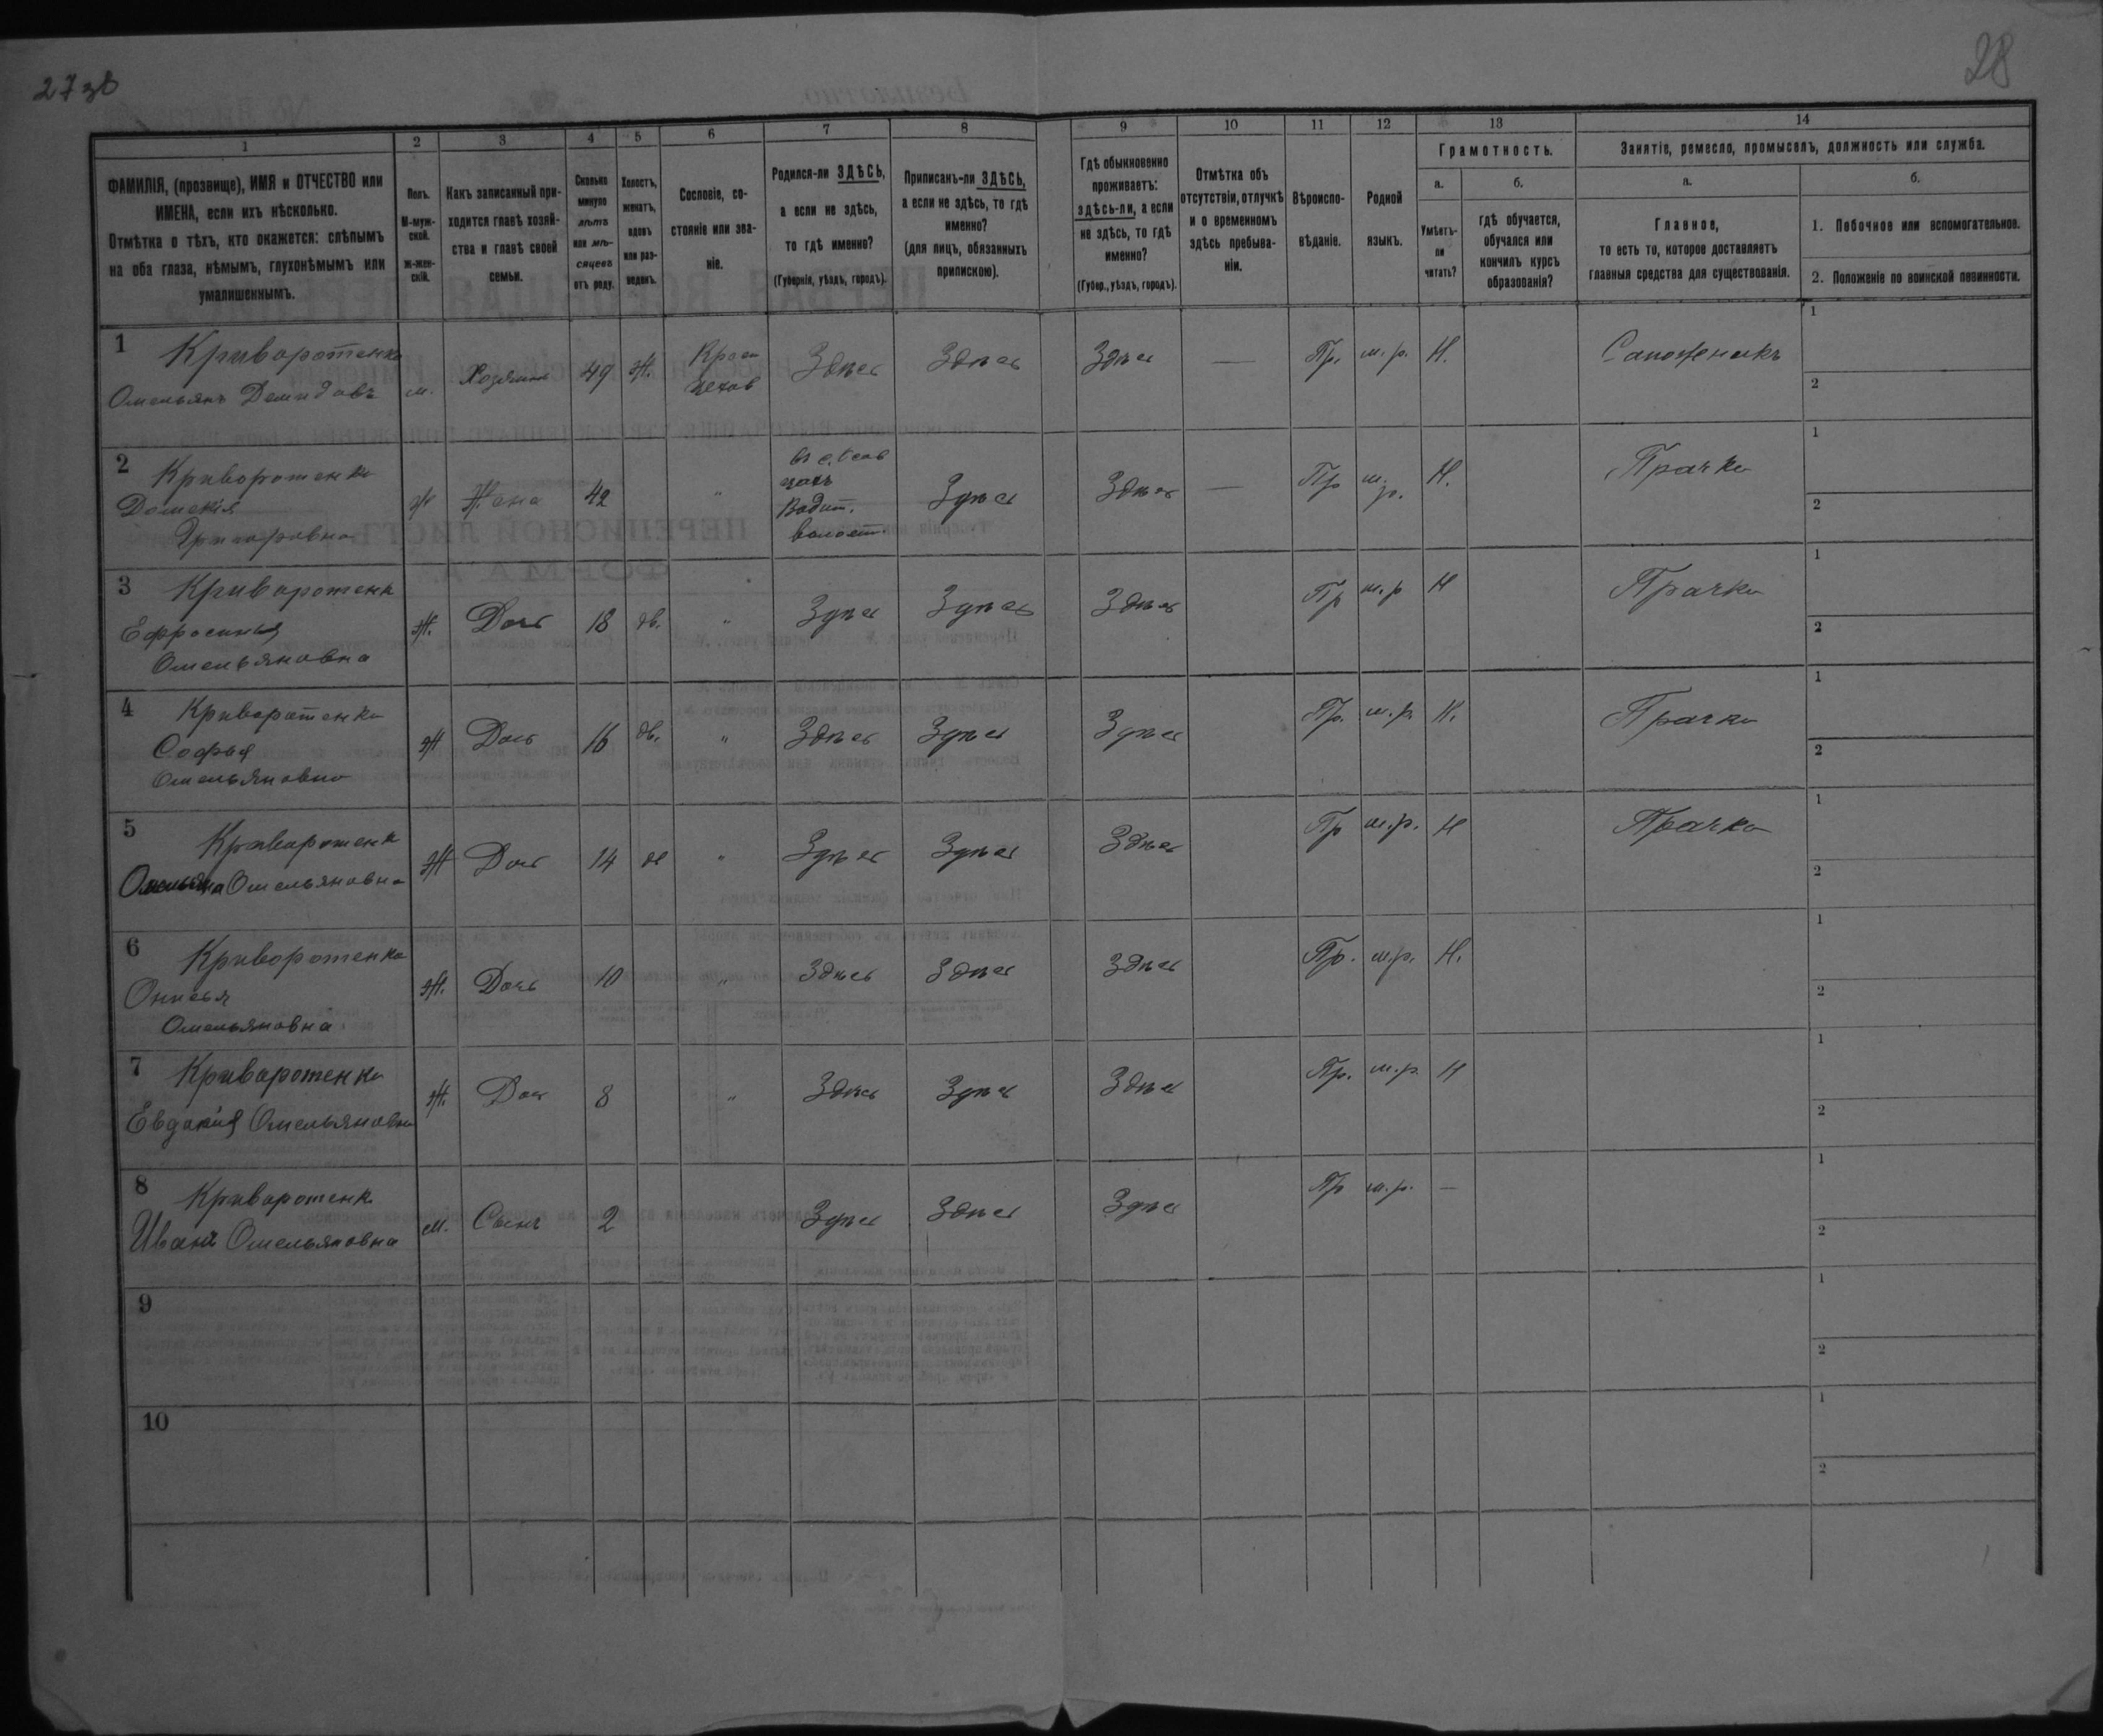 27 зв
28
1 2 3 4 5 6 7 8 9 10 11 12 13 14
ФАМИЛІЯ, (прозвище), ИМЯ и ОТЧЕСТВО или
ИМЕНА, если ихъ нѣсколько.
Отмѣтка о тѣхъ, кто окажется: слѣпымъ
на оба глаза, нѣмымъ, глухонѣмымъ или
умалишеннымъ.
Полъ.
М-муж-
ской.
ж-жен-
скій.
Какъ записанный при-
ходится главѣ хозяй-
ства и главѣ своей
семьи.
Сколько
минуло
лѣтъ
или мѣ-
сяцевъ
отъ роду.
Холостъ,
женатъ,
вдовъ
или раз-
веденъ.
Сословіе, со-
стояніе или зва-
ніе.
Родился-ли ЗДѢСЬ,
а если не здѣсь,
то гдѣ именно?
(Губернія, уѣздъ, городъ).
Приписанъ-ли ЗДѢСЬ,
а если не здѣсь, то гдѣ
именно?
(для лицъ, обязанныхъ
припискою).
Гдѣ обыкновенно
проживаетъ:
здѣсь-ли, а если
не здѣсь, то гдѣ
именно?
(Губер., уѣздъ, городъ).
Отмѣтка объ
отсутствіи, отлучкѣ
и о временномъ
здѣсь пребыва-
ніи.
Вѣроиспо-
вѣданіе.
Родной
языкъ.
Грамотность.
а.
Умѣетъ-
ли
читать?
б.
гдѣ обучается,
обучался или
кончилъ курсъ
образованія?
Занятіе, ремесло, промыселъ, должность или служба.
а.
Главное,
то есть то, которое доставляетъ
главныя средства для существованія.
б.
1. Побочное или вспомогательное.
2. Положеніе по воинской повинности.
1 Криворотенко
Омельянъ Демидовъ
м. Хозяинъ 49 Ж. Здѣсь Здѣсь Здѣсь — Пр. м.р. Н. Сапожникъ
1
2
2 Криворотенко
Домекія
Григоровна
ж Жена 42 "
волост.
Здѣсь Здѣсь — Пр м.р. Н. Прачка
1
2
3 Криворотенк
Ефросинья
Омельяновна
Ж. Дочь 18 дв. " Здѣсь Здѣсь Здѣсь Пр м.р Н Прачка
1
2
4 Криворотенко
Софья
Омельяновна
Ж Дочь 16 дв. " Здѣсь Здѣсь Здѣсь Пр. м.р. Н. Прачка
1
2
5 Криворотенк
Омельяновна
Ж Дочь 14 " Здѣсь Здѣсь Здѣсь Пр м.р. Н Прачка
1
2
6 Криворотенко
Онисья
Омельяновна
Ж. Дочь 10 " Здѣсь Здѣсь Здѣсь Пр. м.р. Н.
1
2
7 Криворотенко
Евдокія Омельяновна
Ж. Дочь 8 " Здѣсь Здѣсь Здѣсь Пр. м.р. Н
1
2
8 Криворотенк
Иванъ Омельяновна
м. Сынъ 2 Здѣсь Здѣсь Здѣсь Пр м.р. —
1
2
9
1
2
10
1
2